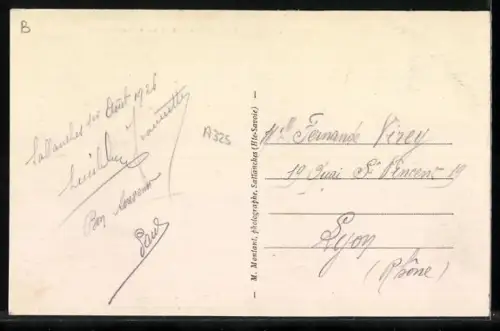 B
Sallanches 1er Août 1926
Bon Souvenir
A325
M. Montant, photographe, Sallanches (Hte-Savoie)
Mlle Fernande Virey
19 Quai St Vincent 19
Lyon
(Rhône)